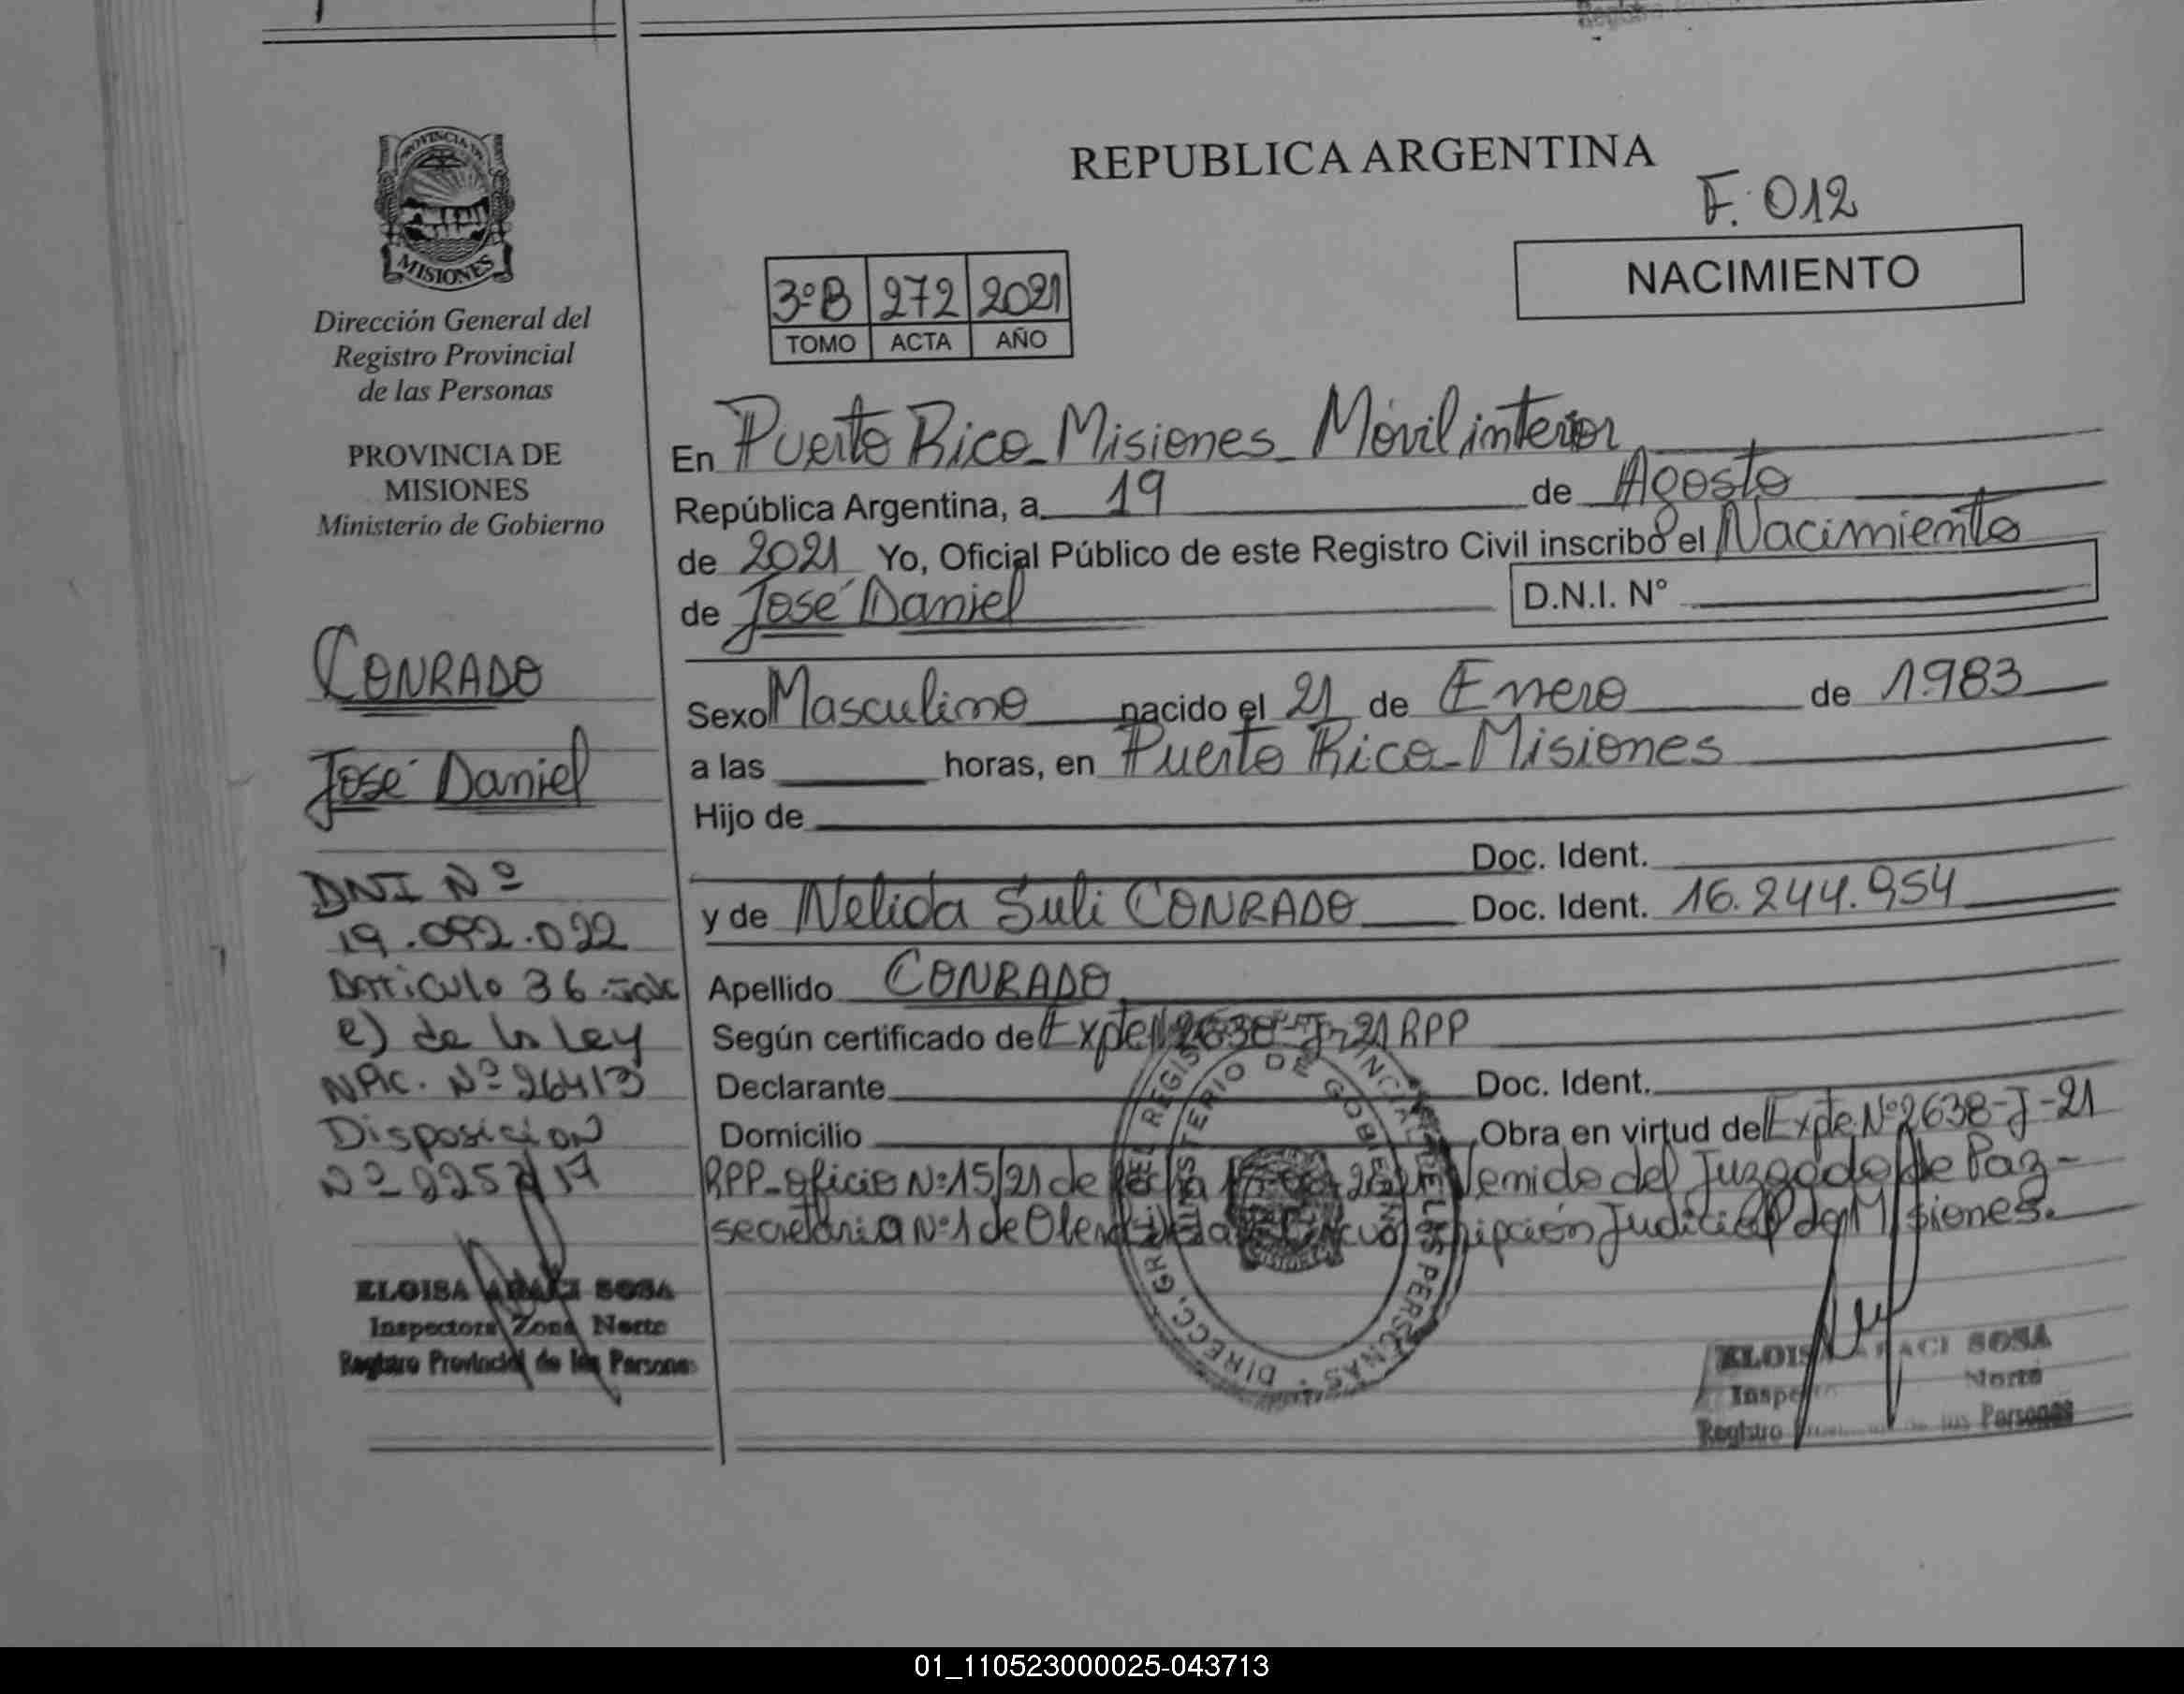 PROVINCIA DE
MISIONES
Dirección General del
Registro Provincial
de las Personas
PROVINCIA DE
MISIONES
Ministerio de Gobierno
CONRADO
José Daniel
DNI Nº
19.092.022
Articulo 36
e) de la Ley
NAC. Nº 26413
Disposicion
ELOISA ARACI SOSA
Inspectora Zona Norte
Registro Provincial de las Personas
REPUBLICA ARGENTINA
F. 012
NACIMIENTO
3ºB 272 2021
TOMO ACTA AÑO
En Puerto Rico - Misiones - Móvil interior
República Argentina, a 19 de Agosto
de 2021 Yo, Oficial Público de este Registro Civil inscribo el Nacimiento
de José Daniel D.N.I. Nº
Sexo Masculino nacido el 21 de Enero de 1983
a las horas, en Puerto Rico - Misiones
Hijo de
Doc. Ident.
y de Nelida Suli CONRADO Doc. Ident. 16.244.954
Apellido CONRADO
Según certificado de Expte Nº 2638-J-21 RPP
Declarante Doc. Ident.
Domicilio Obra en virtud del Expte Nº 2638-J-21
RPP - oficio Nº 15/21 de fecha Venido del Juzgado de Paz -
secretaria Nº 1 de Judicial de Misiones.
DIRECC. GRAL. DEL REGISTRO PROVINCIAL DE LAS PERSONAS
MINISTERIO DE GOBIERNO
ELOISA ARACI SOSA
Norte
Registro de las Personas
01_110523000025-043713